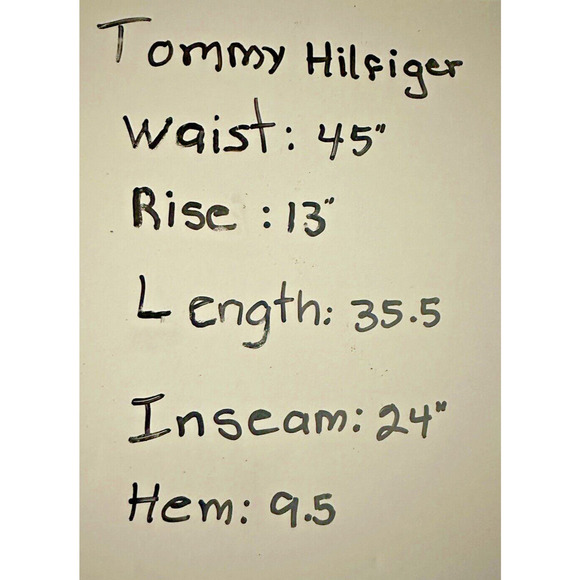 Tommy Hilfiger
Waist: 45"
Rise : 13"
Length: 35.5
Inseam: 24"
Hem: 9.5